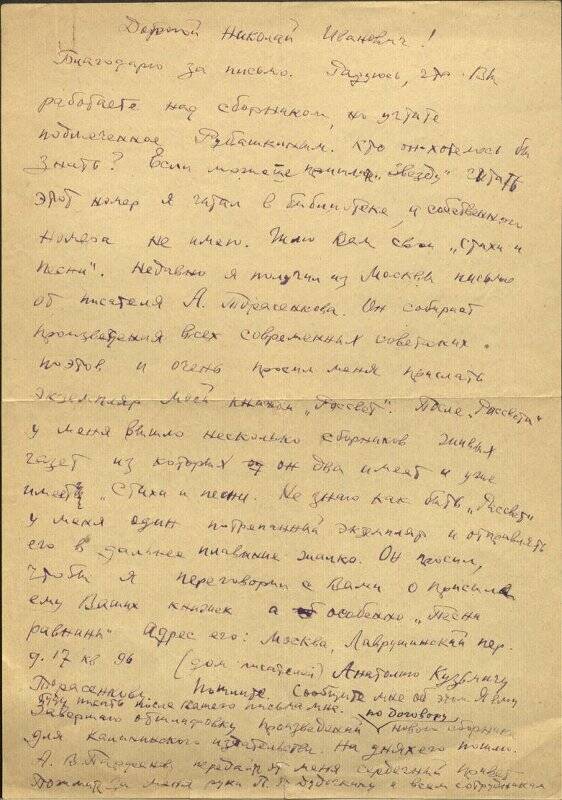 Дорогой Николай Иванович!
Благодарю за письмо. Радуюсь, что Вы
работаете над сборником, но учтите
подмеченное Рубашкиным. Кто он хотелось бы
знать? Если можете пришлите „Звезду"
этот номер я читал в библиотеке, а собственного
номера не имею. Шлю Вам свои „Стихи и
песни". Недавно я получил из Москвы письмо
от писателя А. Тарасенкова. Он собирает
произведения всех современных советских
поэтов и очень просил меня прислать
экземпляр моей книжки „Рассвет". После „Рассвета"
у меня вышло несколько сборников живых
газет из которых он два имеет и уже
имеет „Стихи и песни. Не знаю как быть „Рассвет"
у меня один потрепанный экземпляр и отправлять
его в дальнее плавание жалко. Он просил,
чтобы я переговорил с Вами о присылке
ему Ваших книжек а особенно „Песни
равнины" Адрес его: Москва, Лаврушинский пер.
д. 17 кв 96 (дом писателей) Анатолию Кузьмичу
Тарасенкову. Пошлите. Сообщите мне об этом. Я ему
буду писать после вашего письма мне.
Завершаю отшлифовку произведений по договору нового сборника
для калининского издательства. На днях его пошлю.
А. В. передайте от меня сердечный привет
Пожмите за меня руки и всем сотрудникам